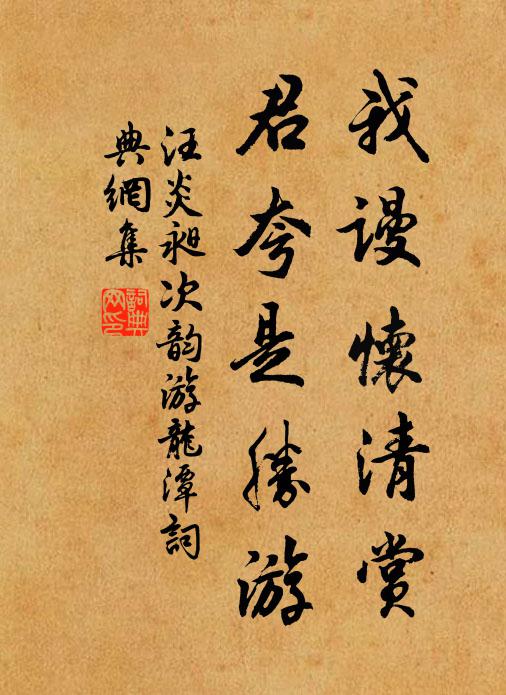 我谩懷清賞
君夸是勝游
汪炎昶次韵游龍潭詞
典網集
詞典
网印